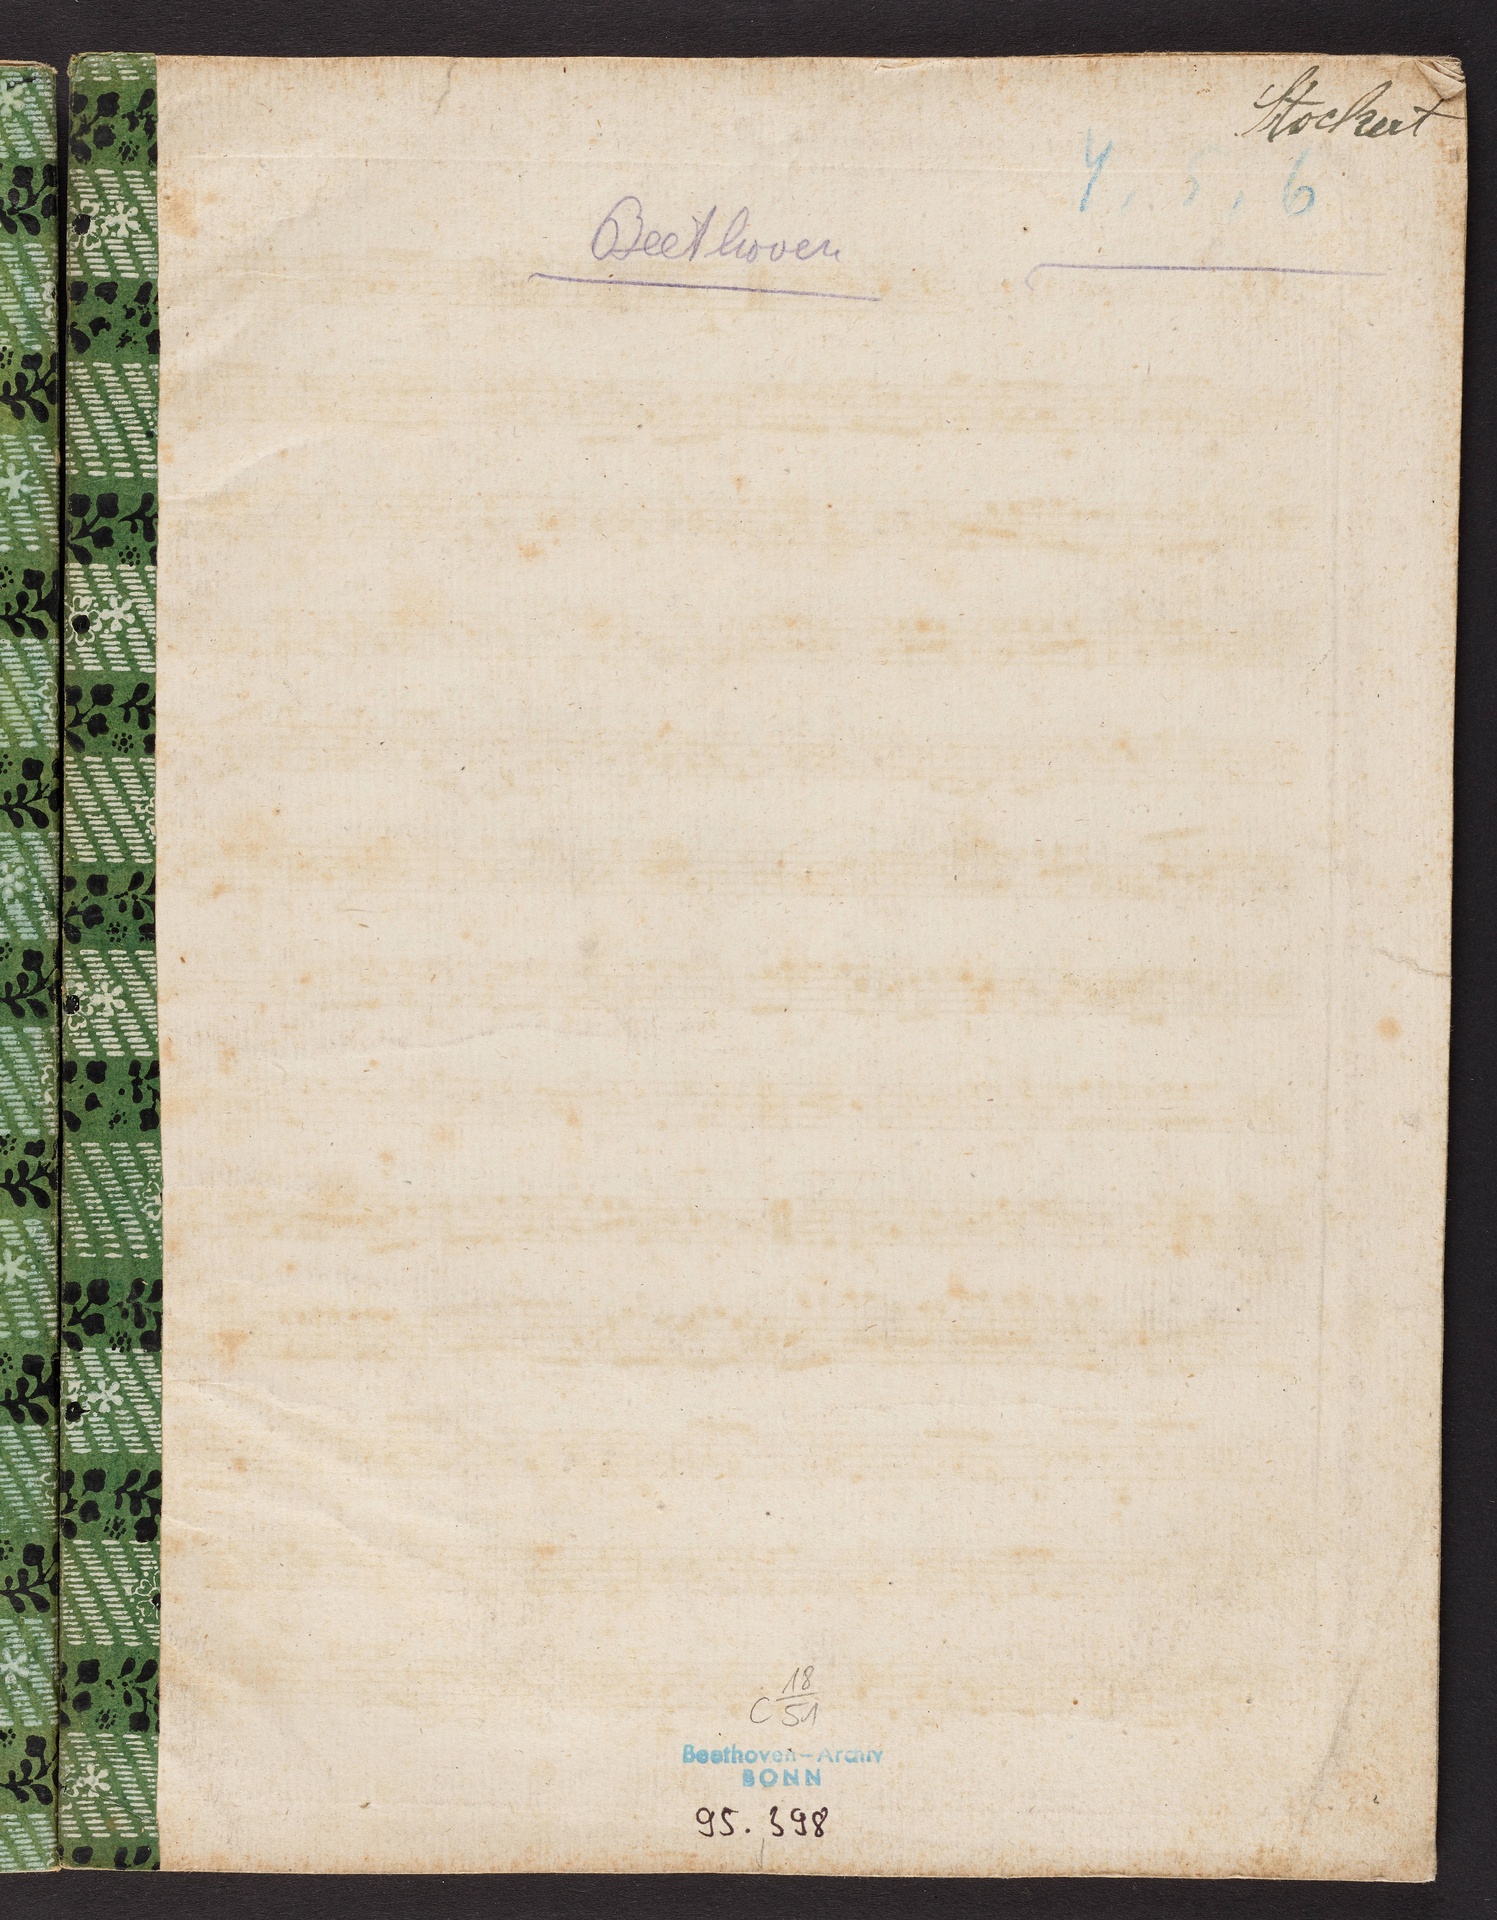 Stockert
4, 5, 6
Beethoven
C 18/51
Beethoven-Archiv
BONN
95. 398